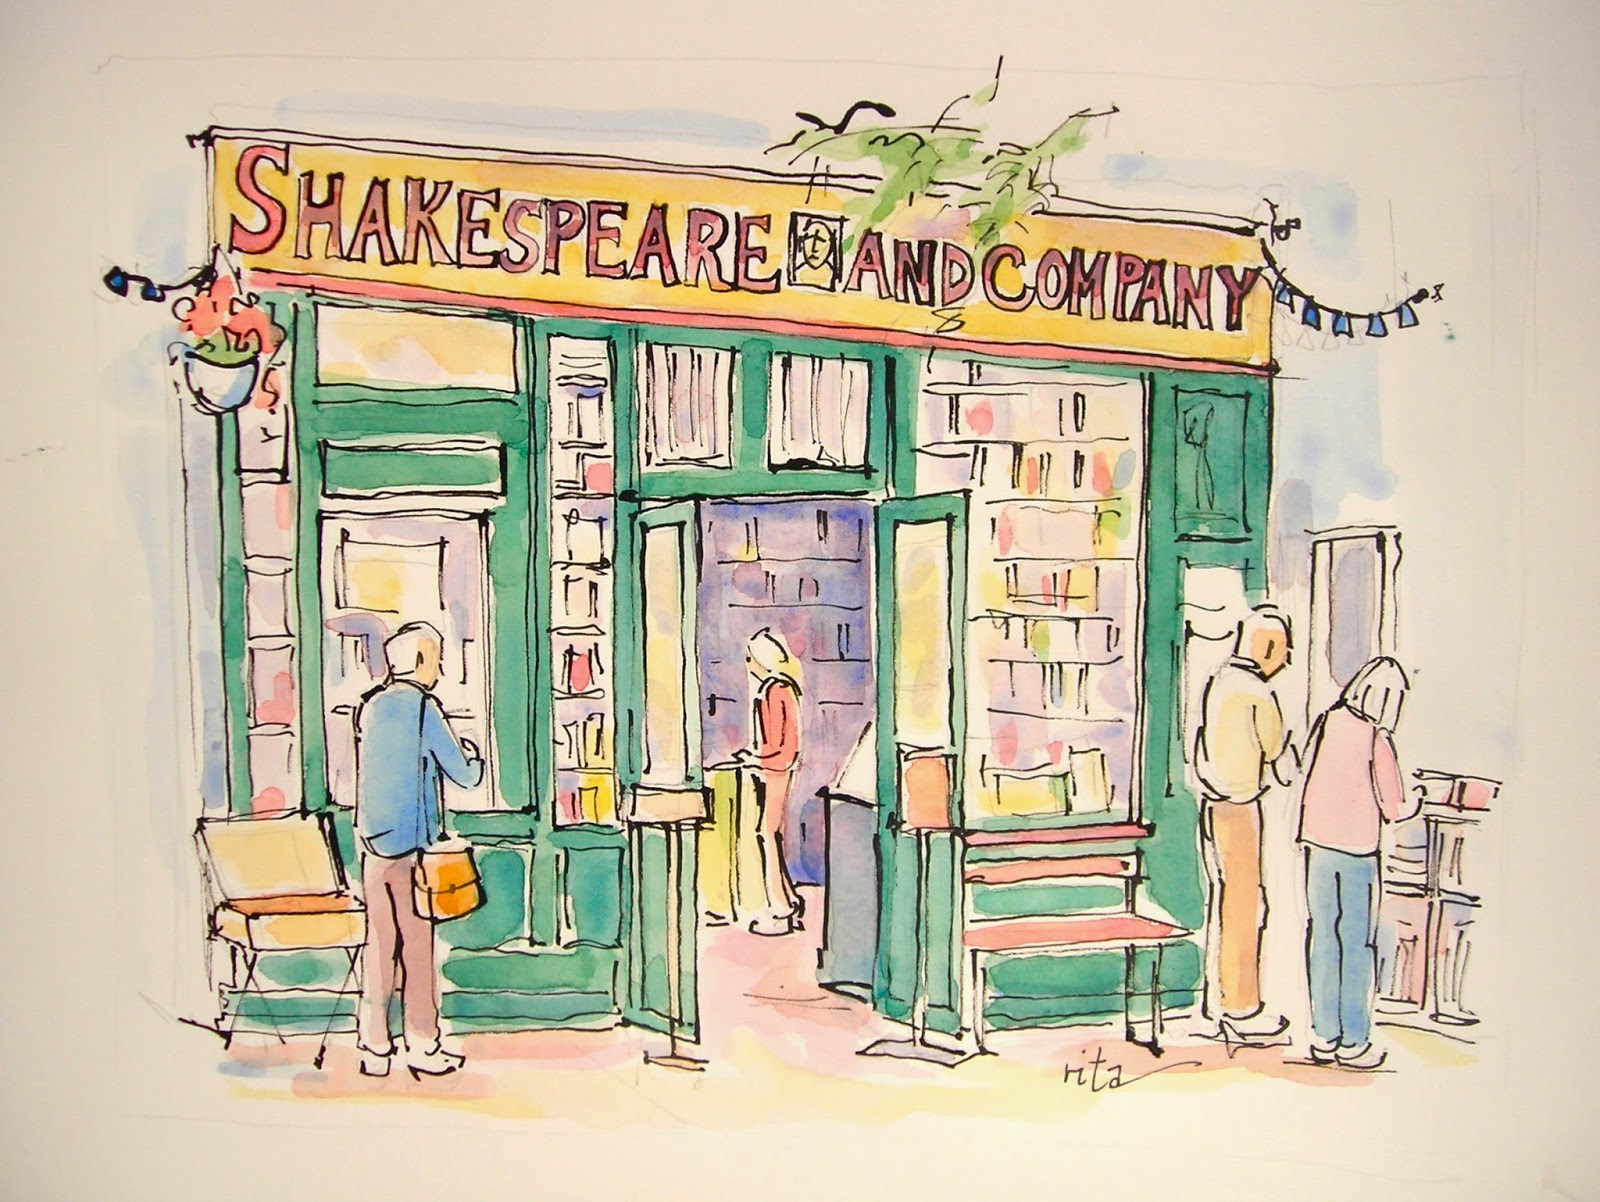 SHAKESPEARE AND COMPANY
rita